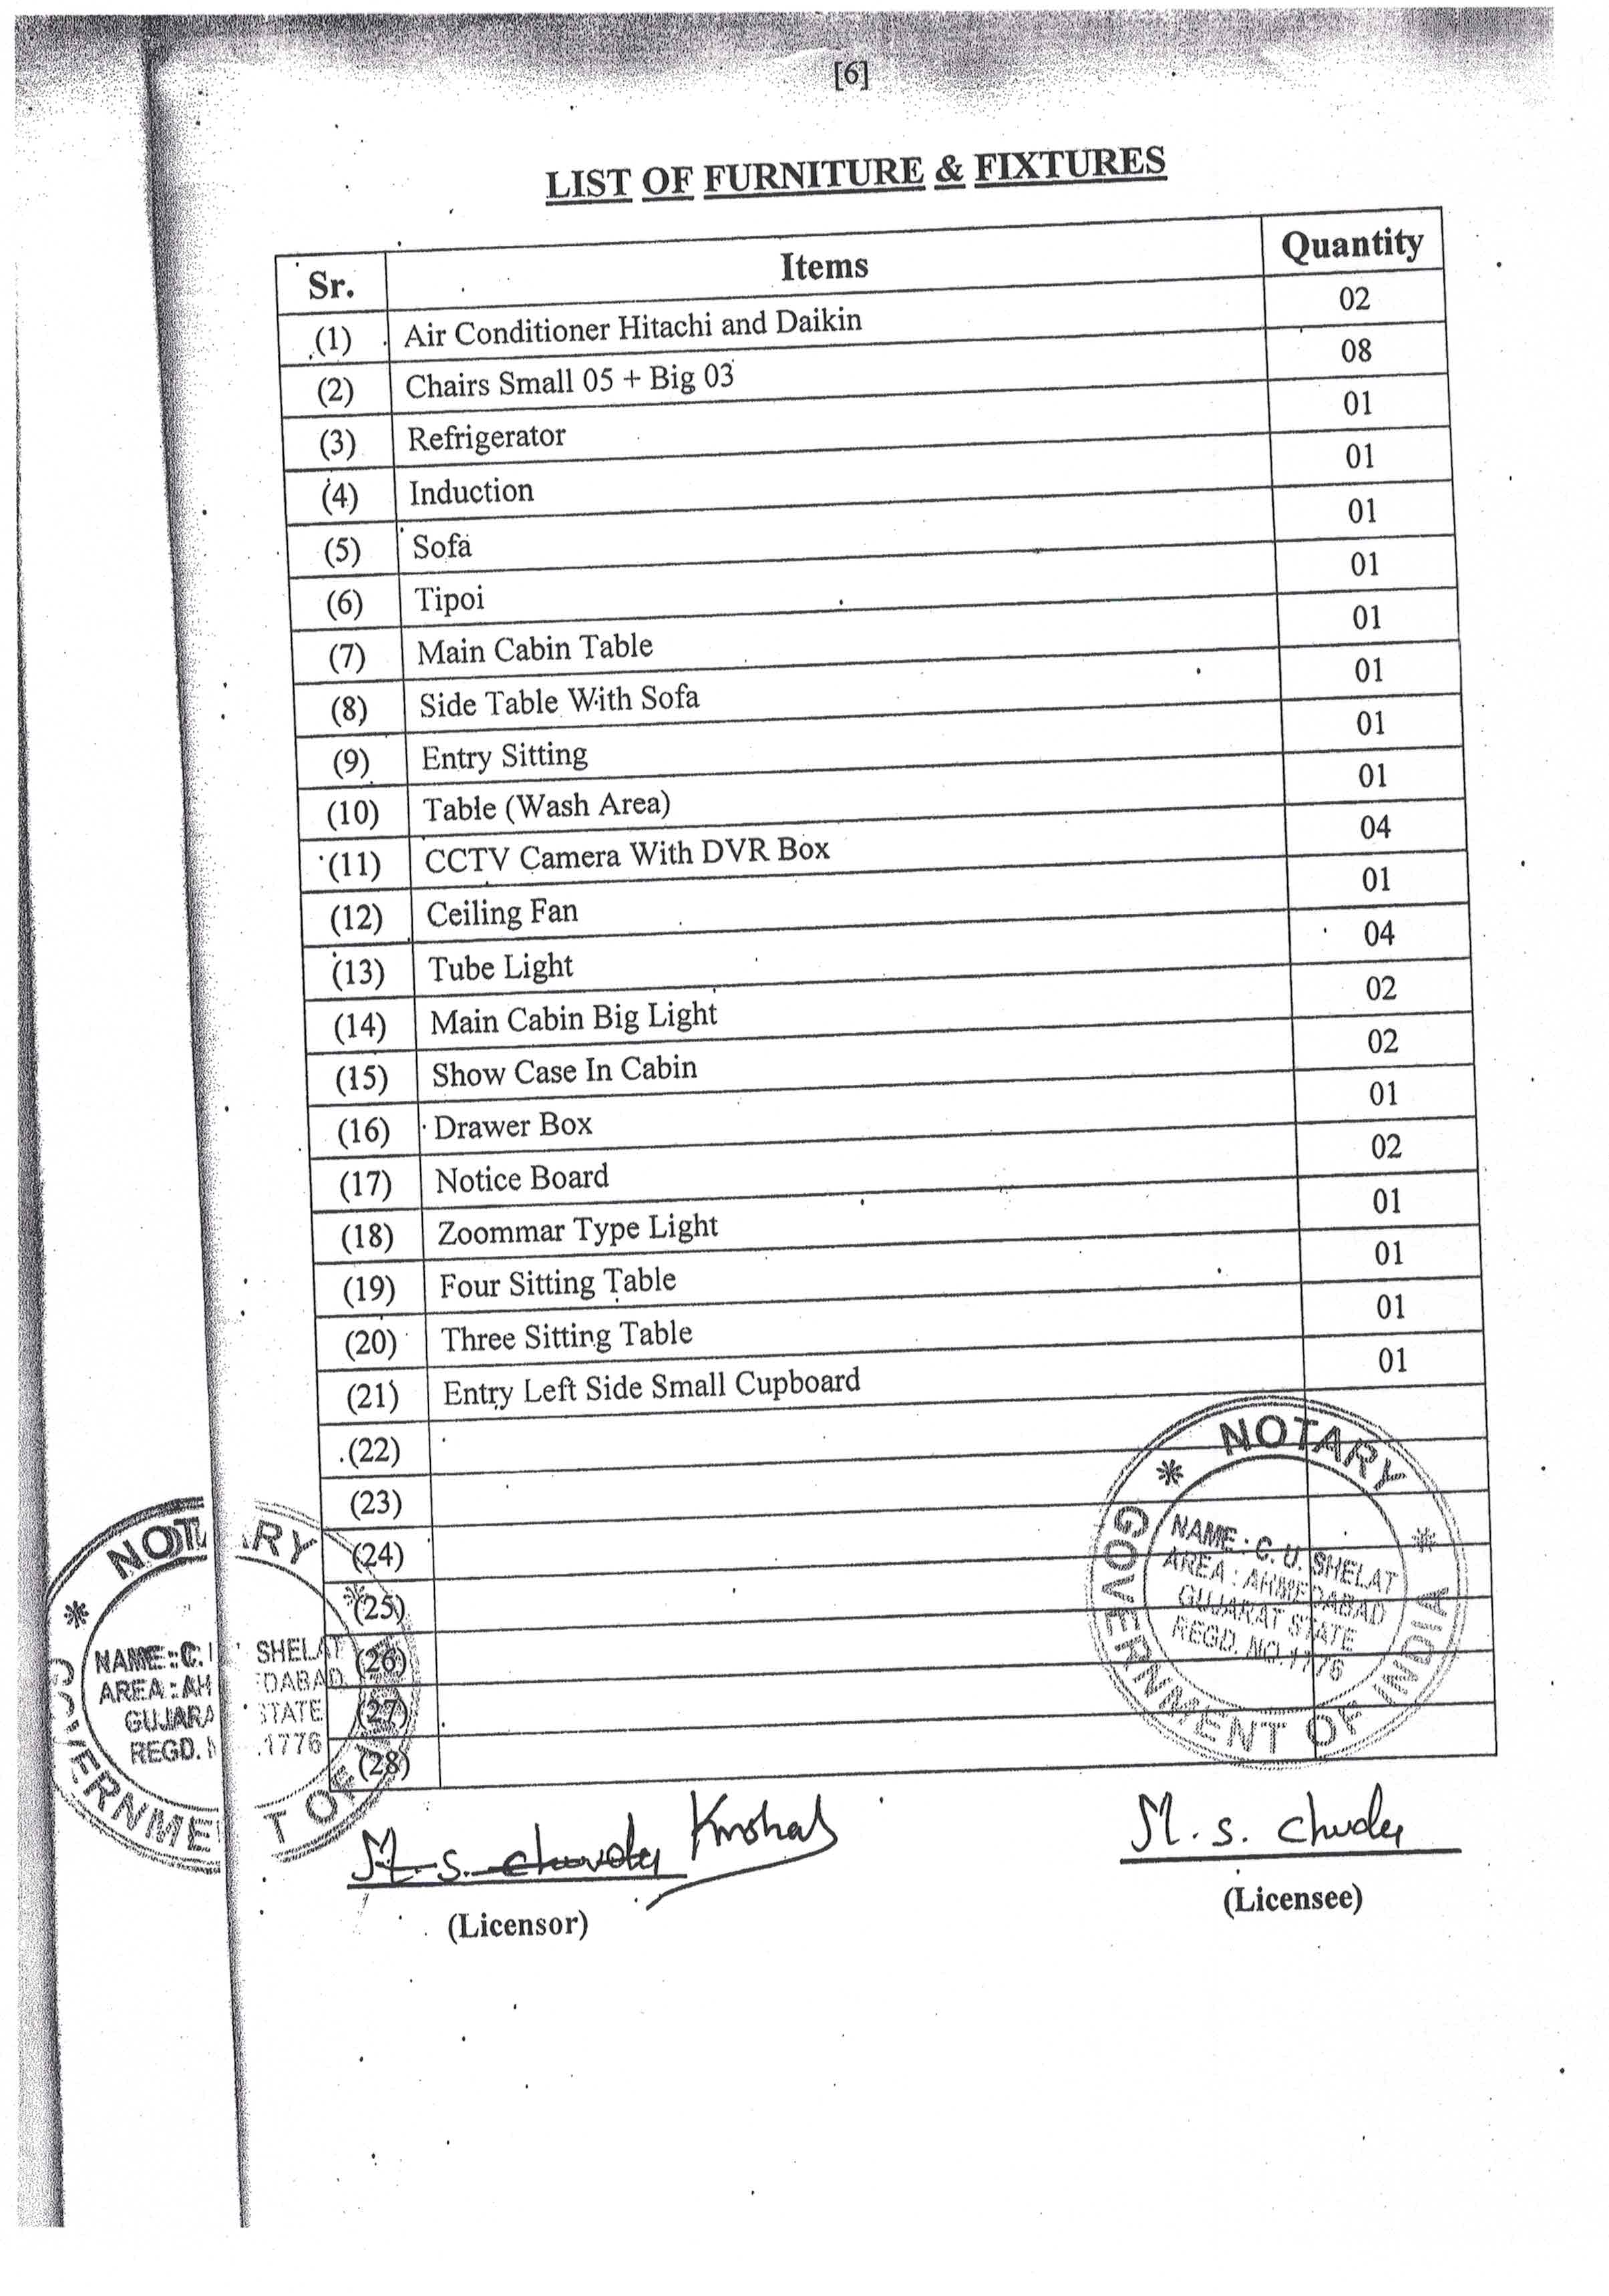 [6]
LIST OF FURNITURE & FIXTURES
Sr. Items Quantity
(1) Air Conditioner Hitachi and Daikin 02
(2) Chairs Small 05 + Big 03 08
(3) Refrigerator 01
(4) Induction 01
(5) Sofa 01
(6) Tipoi 01
(7) Main Cabin Table 01
(8) Side Table With Sofa 01
(9) Entry Sitting 01
(10) Table (Wash Area) 01
(11) CCTV Camera With DVR Box 04
(12) Ceiling Fan 01
(13) Tube Light 04
(14) Main Cabin Big Light 02
(15) Show Case In Cabin 02
(16) Drawer Box 01
(17) Notice Board 02
(18) Zoommar Type Light 01
(19) Four Sitting Table 01
(20) Three Sitting Table 01
(21) Entry Left Side Small Cupboard 01
(22)
(23)
(24)
(25)
(26)
(27)
(28)
NOTARY
NAME : C. U. SHELAT
AREA : AHMEDABAD
GUJARAT STATE
REGD. NO. 1776
GOVERNMENT OF INDIA
NOT ARY
NAME : C. SHELAT
AREA : AH EDABAD
GUJARA STATE
REGD. N .1776
GOVERNME T OF
M. s.
M. s.
(Licensor)
(Licensee)